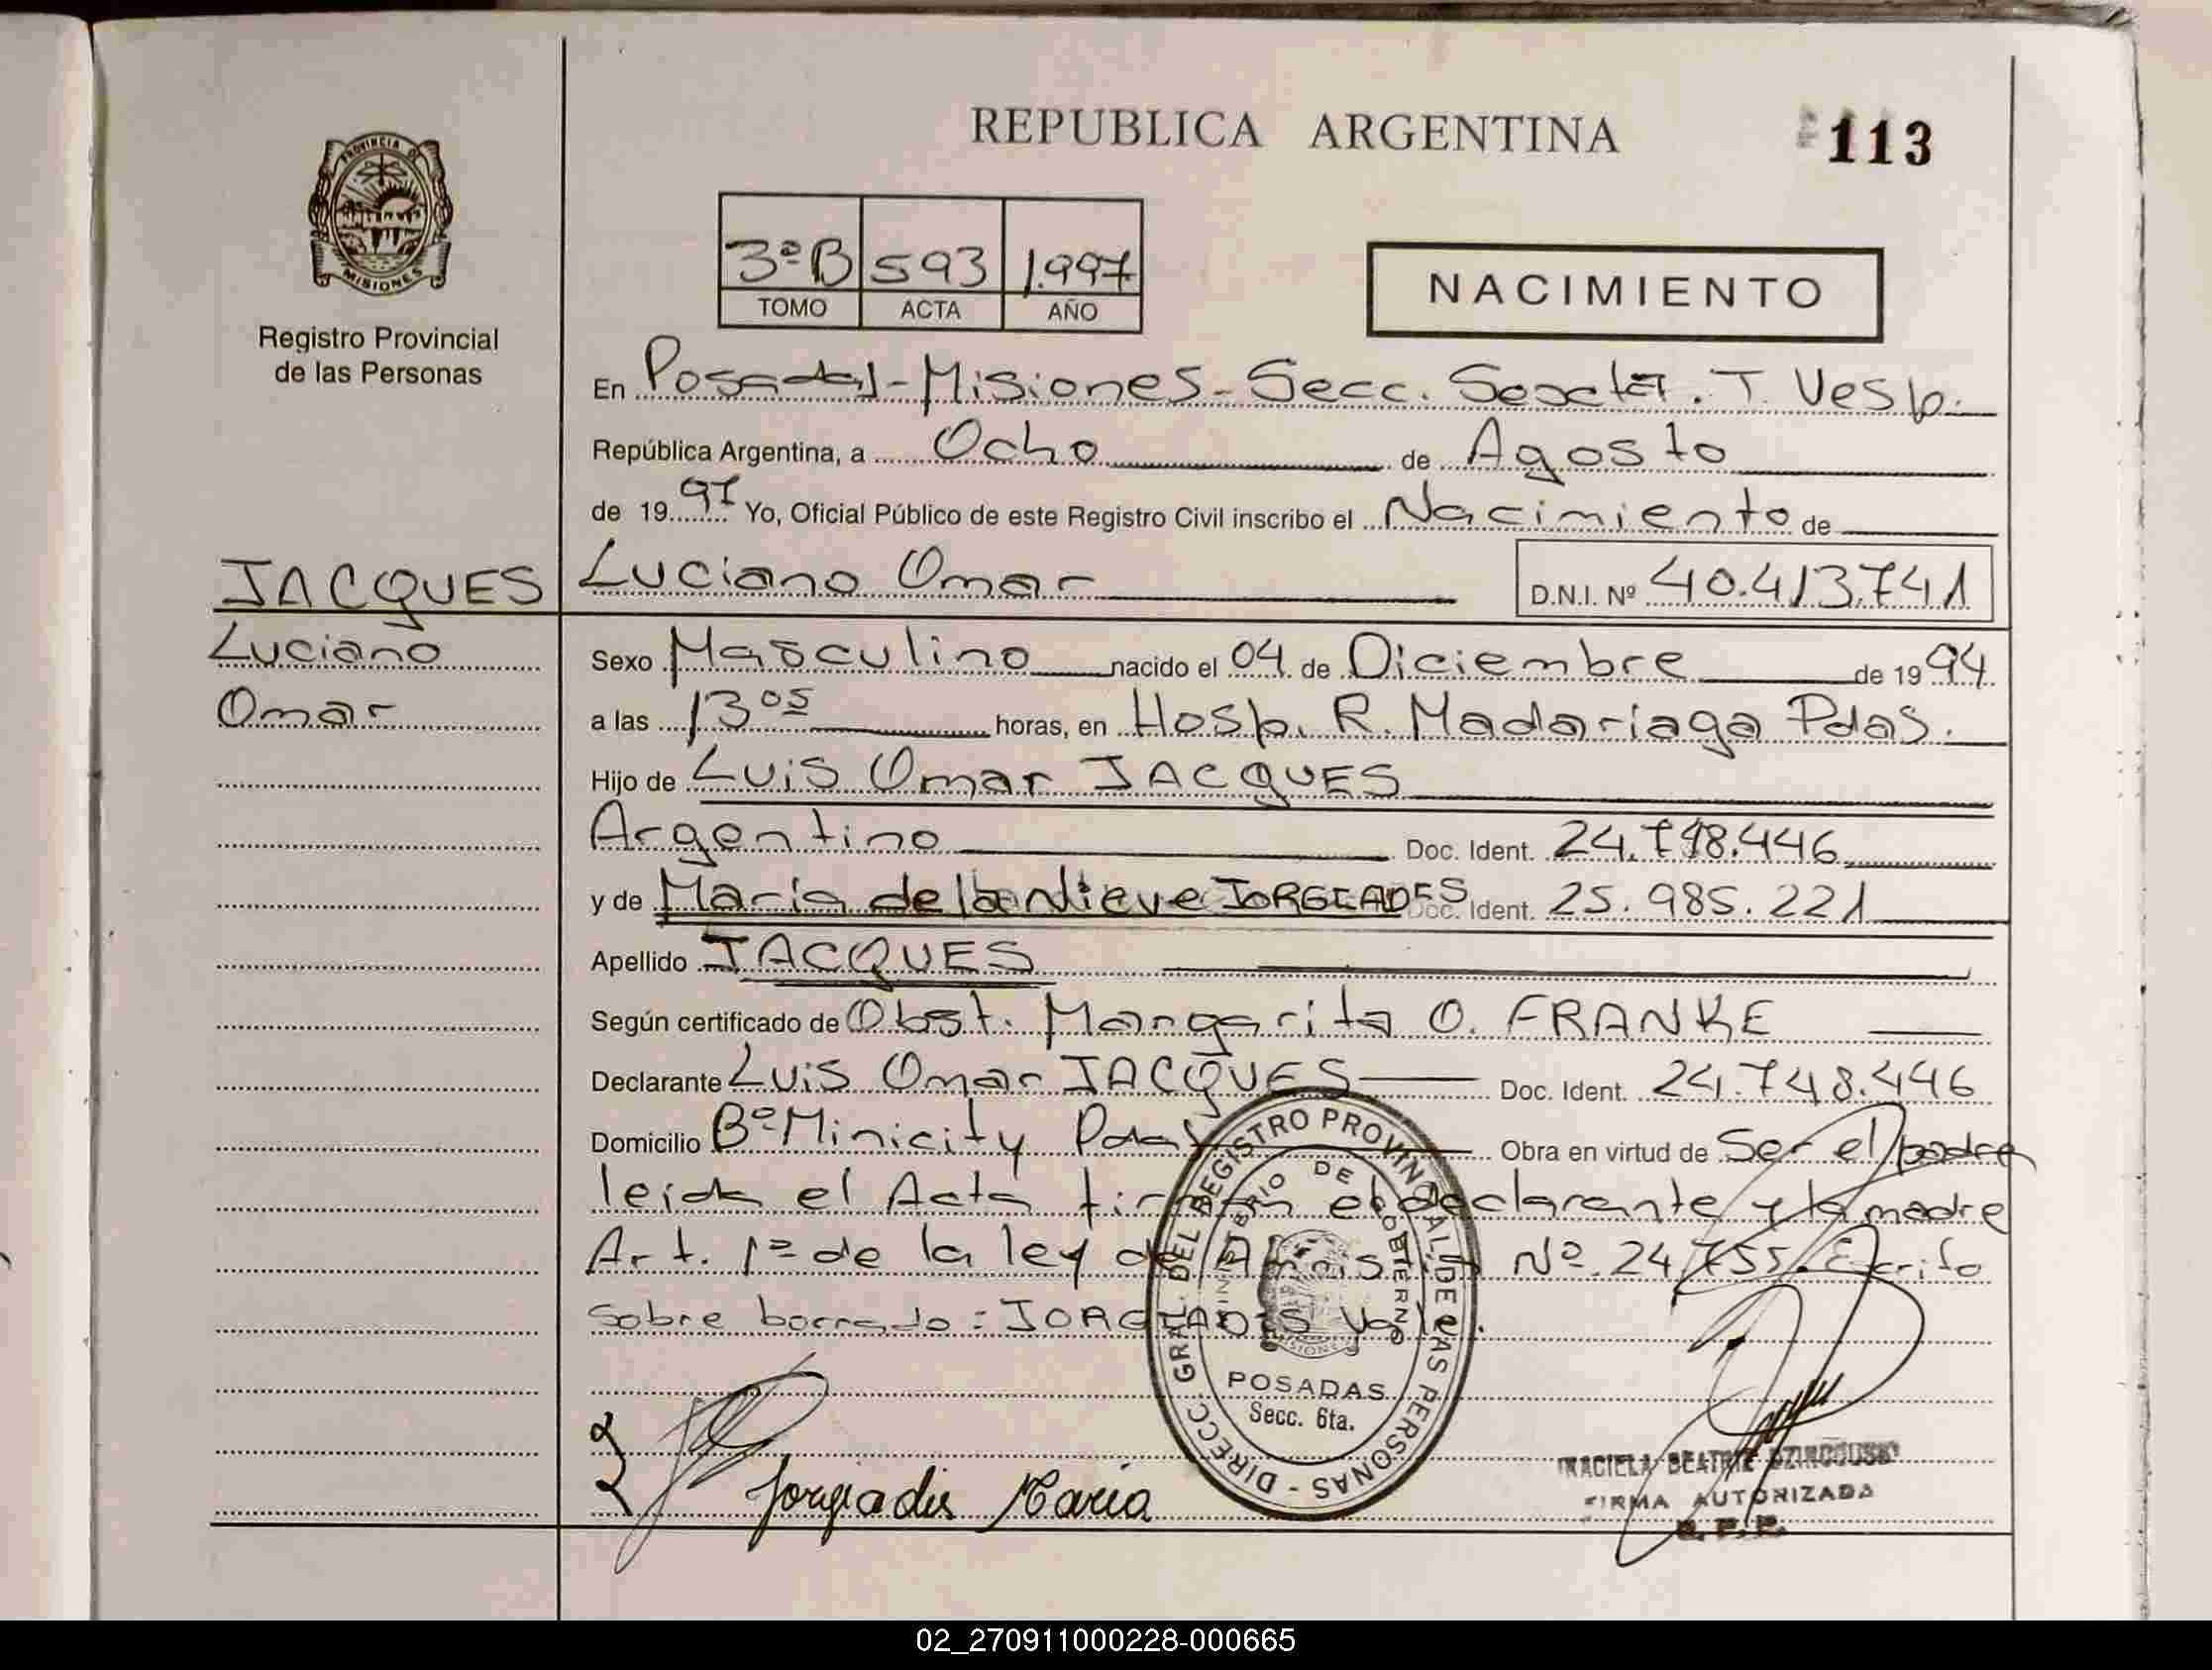 REPUBLICA ARGENTINA
113
PROVINCIA DE
MISIONES
Registro Provincial
de las Personas
3ª B 593 1.997
TOMO ACTA AÑO
NACIMIENTO
En Posadas-Misiones-Secc. Sexta. T. Vesp.
República Argentina, a Ocho de Agosto
de 1997 Yo, Oficial Público de este Registro Civil inscribo el Nacimiento de
JACQUES Luciano Omar D.N.I. Nº 40.413.741
Luciano
Omar
Sexo Masculino nacido el 04 de Diciembre de 1994
a las 13 05 horas, en Hosp. R. Madariaga Pdas.
Hijo de Luis Omar JACQUES
Argentino Doc. Ident.
y de Maria de JORGIADES Doc. Ident. 25.985.221
Apellido JACQUES
Según certificado de Obst. Margarita O. FRANKE
Declarante Luis Omar JACQUES Doc. Ident. 24.748.446
Domicilio Bº Minicity Pdas Obra en virtud de Ser el padre
leida el Acta firman el declarante y la madre
Art. 1º de la ley de Amnistia Nº 24.755. Escrito
sobre borrado: JORGIADIS Vale.
DIRECC. GRAL. DEL REGISTRO PROVINCIAL DE LAS PERSONAS
MINISTERIO DE GOBIERNO
MISIONES
POSADAS
Secc. 6ta.
Jorgiadis Maria
BEATRIZ
FIRMA AUTORIZADA
02_270911000228-000665